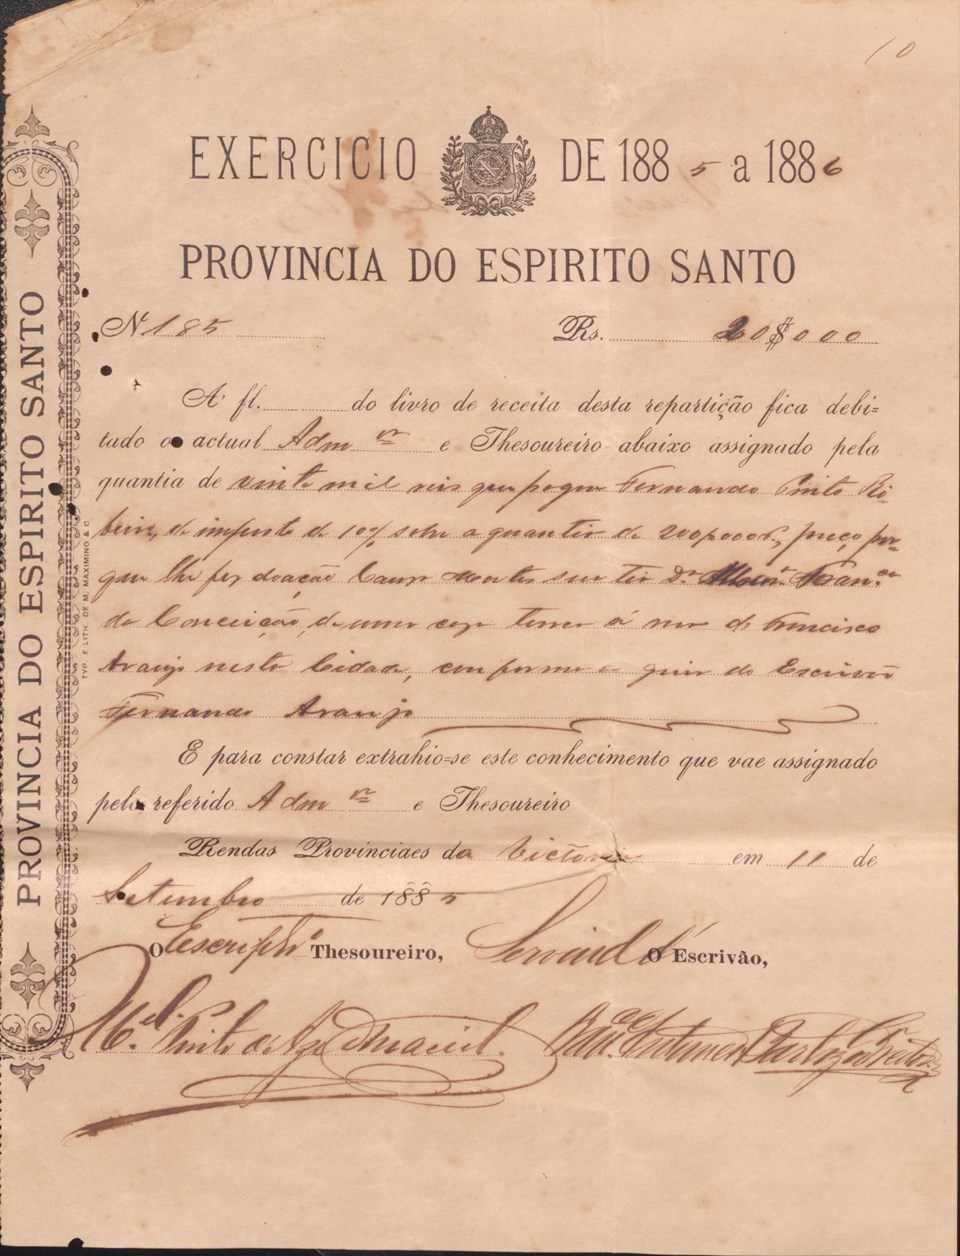 10
EXERCICIO DE 1885 a 1886
PROVINCIA DO ESPIRITO SANTO
N 185 Rs. 20$000
A' fl. do livro de receita desta repartição fica debi=
tado o actual Admor e Thesoureiro abaixo assignado pela
quantia de vinte mil reis que pagou Fernando Pinto Ri-
beiro, de imposto de 10% sobre a quantia de 200,000 preço por-
que lhe fez doação sua tia D.
da Conceição, de uma casa terrea á rua de Francisco
Araujo nesta Cidade, conforme a guia do Escrivão
Fernando Araujo
E para constar extrahio=se este conhecimento que vae assignado
pelo referido Admor e Thesoureiro
Rendas Provinciaes da Victoria em 11 de
Setembro de 1885
O Escripto Thesoureiro, Servindo O Escrivão,
Mel. Pinto de
PROVINCIA DO ESPIRITO SANTO
TYP. E LITH. DE M. MAXIMINO & C.